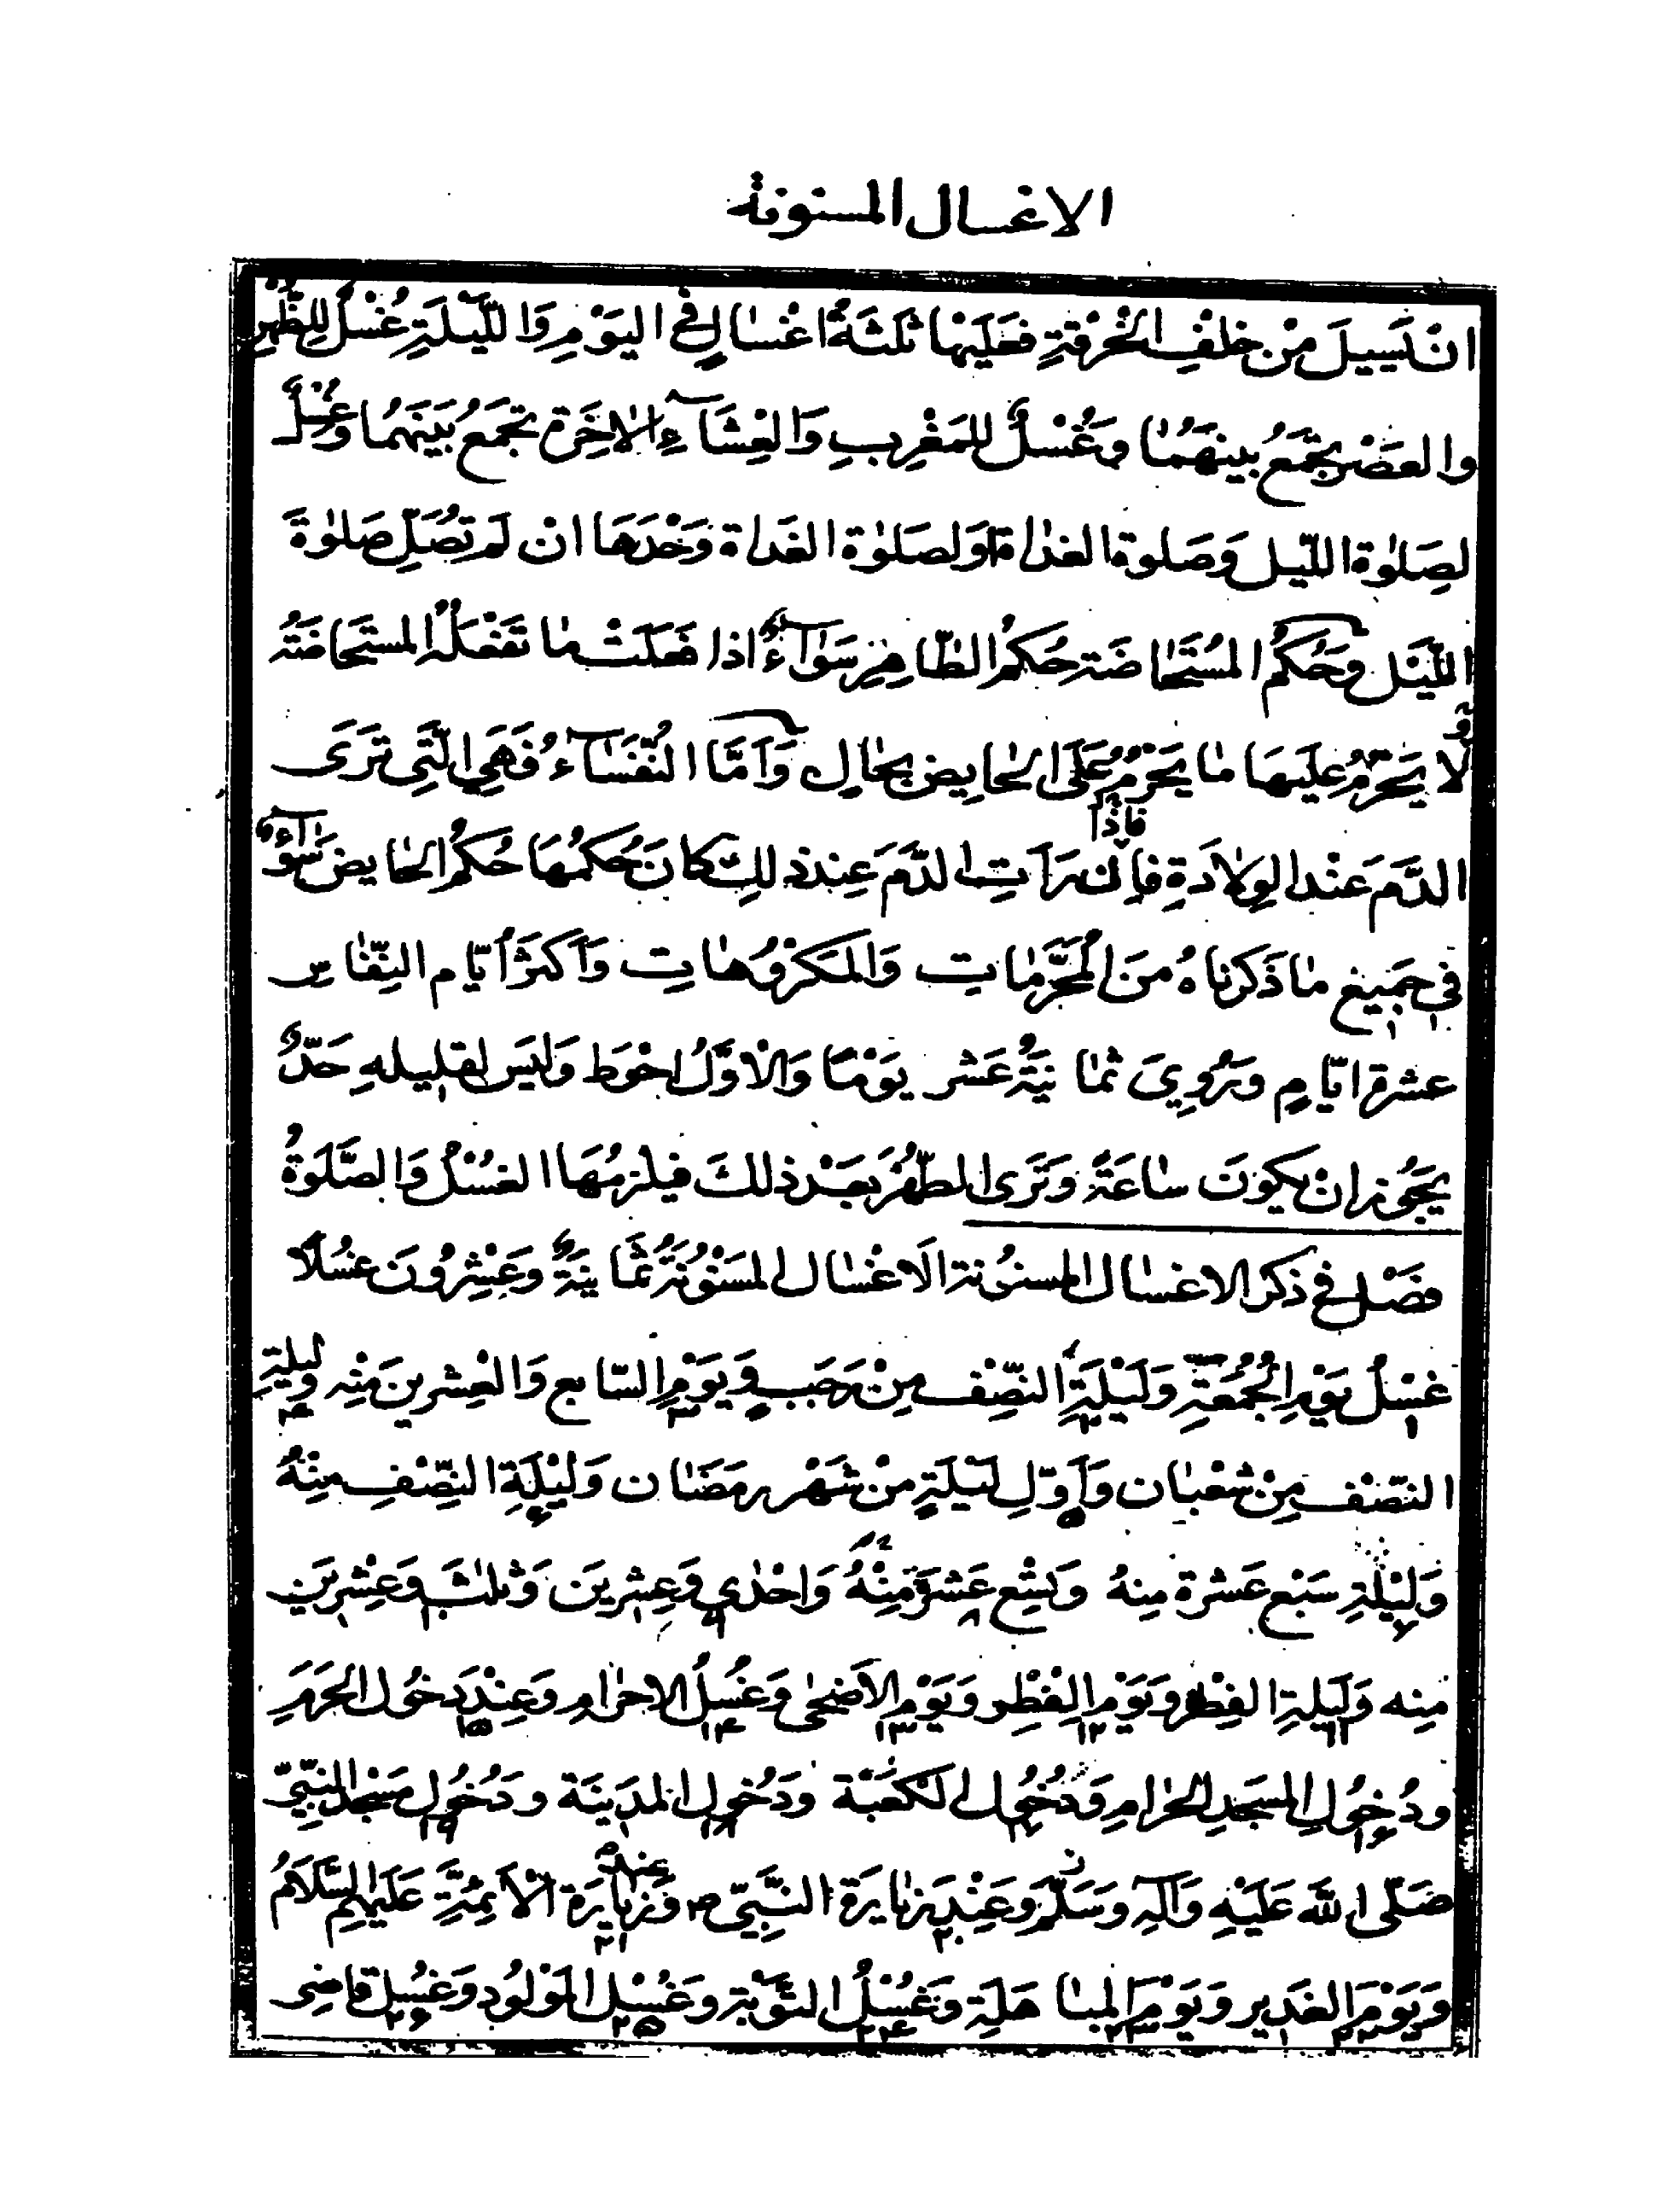 الاغسال المسنونة
انْ تَسيلَ مِنْ خلفِ الخُرْقَةِ فعَلَيْهَا ثلثَةُ اغْسٰالٍ فِي اليَوْمِ وَالَّليْلَةِ غُسْلٌ لِلظُّهْرِ
والعصْرِ تجْمَعُ بينهُمٰا وَغُسْلٌ للمَغْرِبِ وَالعِشَاءِ الاٰخِرَة تَجْمَعُ بَينَهُمَا وَغُسْلٌ
لِصَلٰوةِ اللّيل وَصَلوة الغدٰاة اَوْلصَلوٰة الغَدٰاة وَحْدَهَا انْ لم تُصَلِّ صَلٰوةَ
اللَّيْل وَحُكمُ المسُتَحٰاضَة حُكمُ الطّاهِرِ سَوٰاءٌ اذا فَعَلَتْ مٰا تَفْعَلُهُ المستَحَاضَةُ
وَ
لا يَحْرُمُ عليهَا مٰا يَحْرُمُ عَلَى الحٰايِضِ بِحٰالٍ وَاَمَّا النُّفَسَاءُ فَهِيَ الَّتِي تَرَى
فاذا
الدَّمَ عَنْدَ الوِلاٰدَةِ فاِن رَأَتِ الدَّمَ عِند ذلِكَ كانَ حُكمُهَا حُكمُ الحٰايِض سَوٰاءٌ
في جَميع مٰا ذَكَرناهُ منَ المُحَرَّمٰاتِ وَالمَكرُوُهٰاتِ وَاَكثَرُ اَيّام النِّفٰاس
عشرة ايّامٍ وَرُوِيَ ثمٰانيَةُ عَشر يَوْمًا وَالاْوَّلُ احْوَط وَليَس لقليلهِ حَدٌّ
يَجُوُز انْ يَكوُنَ سٰاعَةً وَتَرَى الطّهْرَ بَعْدَ ذلكَ فيلزمُهَا الغسُلُ وَالصَّلَوةُ
فصَلٌ في ذكر الاغسال المسنوُنة الاَغسٰال المسَنوُنَةُ ثمَانِيَةٌ وعَِشْرُونَ غسُلًا
غسْلُ يَوْمِ الجُمُعَةِ وَلَيْلَةِ النّصْفِ مِنْ رَجَبٍ وَيَوْمِ السّابع وَالعِشرينَ مِنْه وليلةِ
النّصْف مِنْ شعْبٰان وَاَوّلِ لَيْلَةٍ منْ شَهْر رمَضَان وَليْلَةِ النِّصْفِ مِنْهُ
وَلَيْلَةِ سَبْع عَشرة مِنهُ وَتسْع عَشرَةَ مِنْهُ وَاحْدٰي وَعِشرينَ وَثلٰثَ وَعِشْرينَ
مِنه وَلَيلةِ الفِطْر وَيَوْمِ الفِطْرِ وَيَوْمِ الاَضحٰى وَغسُلُ الاحْرٰام وَعِنْدَ دخُول الحَرَمِ
ودُخوُلِ المسَجدِ الحَرٰام وَدُخوُل الكَعْبَة وَدُخوُل المدَينَة ودَخُوُل مسَجْدِ النبَّيِّ
صَلّى اللهَ عَلَيْهِ وَآلهِ وَسَلّم وَعَنِْدَ زيٰارَة النَّبِيّ ص وَزيارَة الاَئِمَّةِ عَلَيهِم السَّلامُ
عند
وَيَوْمِ الغدَير وَيَوْمِ المبٰاهَلَةِ وَغسُلُ التوَّبَةِ وَغسُلِ الموْلوُدِ وَغسُل قاضِى